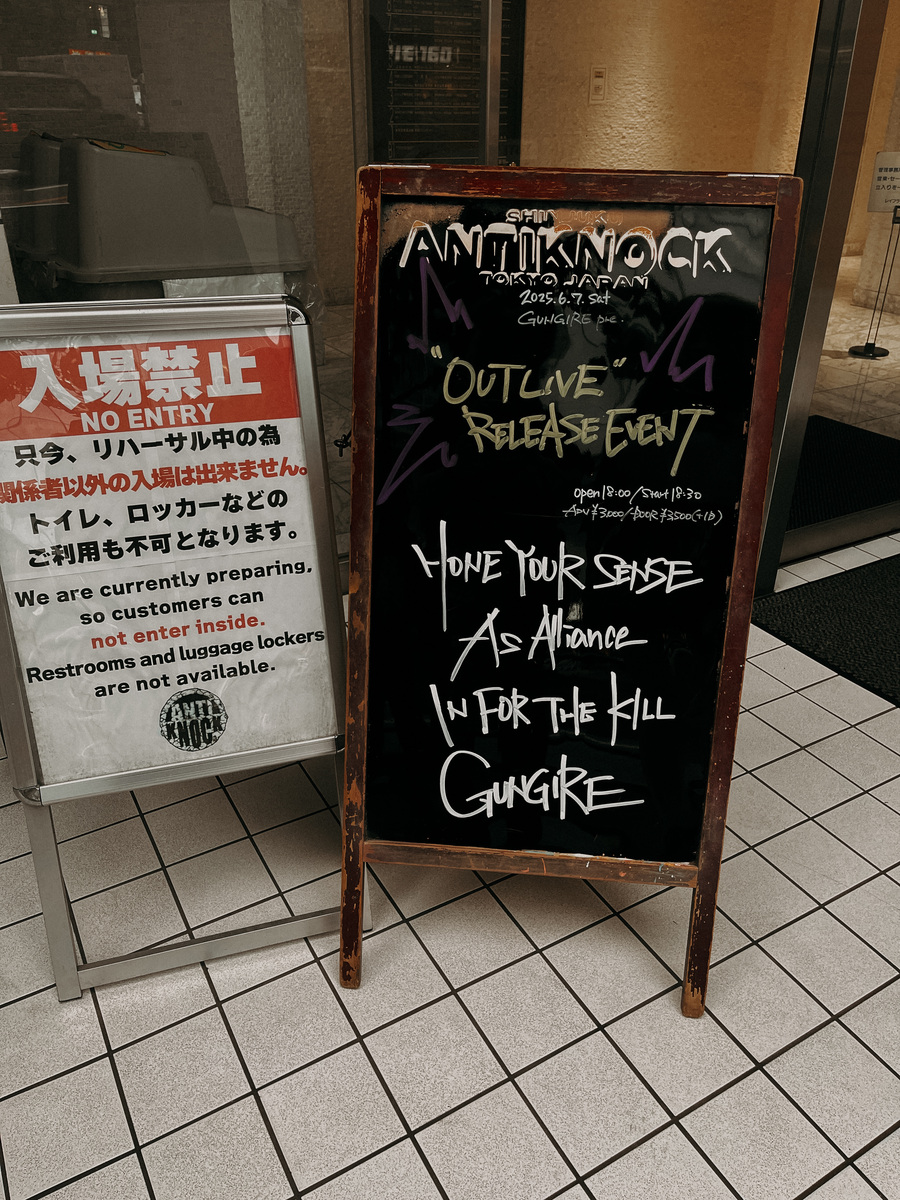 入場禁止
NO ENTRY
只今、リハーサル中の為
関係者以外の入場は出来ません。
トイレ、ロッカーなどの
ご利用も不可となります。
We are currently preparing,
so customers can
not enter inside.
Restrooms and luggage lockers
are not available.
ANTI
KNOCK
ANTIKNOCK
TOKYO JAPAN
2025.6.7. Sat
GUNGIRE pre.
"OUTLIVE"
RELEASE EVENT
open 18:00 / Start 18:30
ADV ¥3,000 / DOOR ¥3,500 (+1D)
HONE YOUR SENSE
As Alliance
IN FOR THE KILL
GUNGIRE